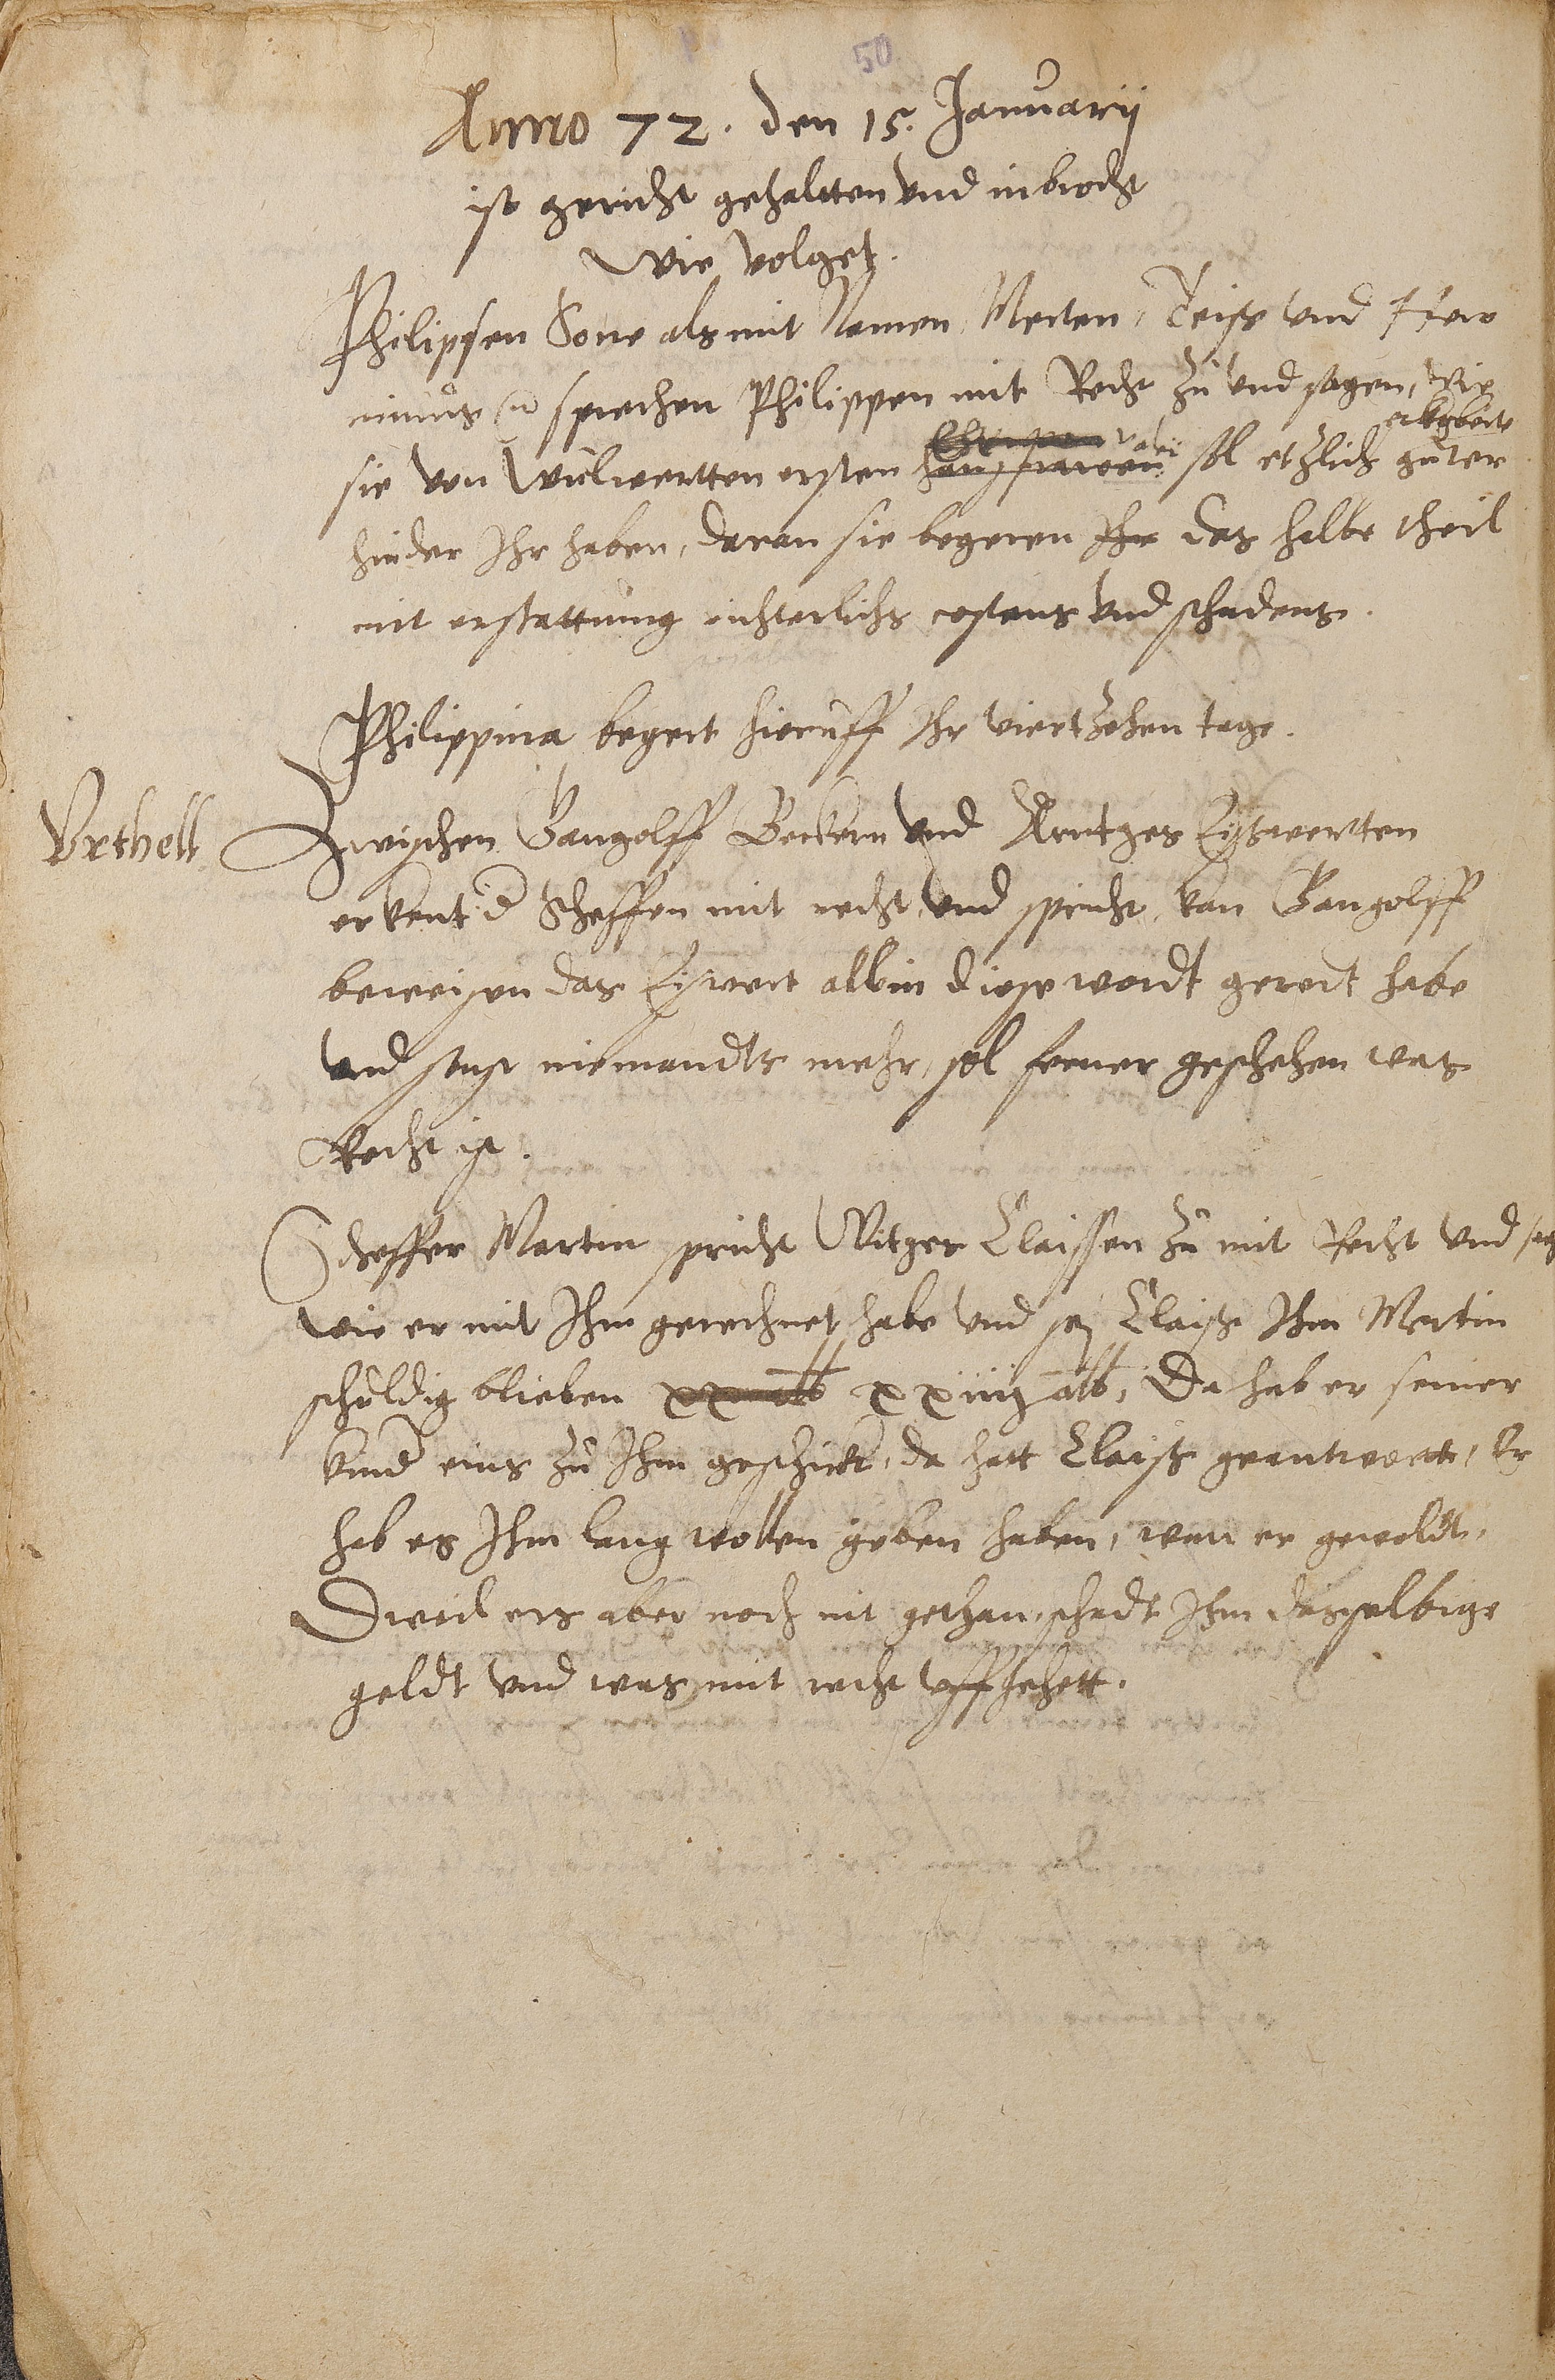 50
Anno 72. den 15. Januarij
ist gericht gehaltten vnd inbrocht
Wie volget.
Philipsen Sone als mit Namen, Merten, Theiß vnd
sprechen Philippen mit Recht zu vnd sagen, Wie
erkhborte
sie von ersten haußfrawen sol etzlich güter
hinder Ihr haben, daran sie begeren Ihr das halbe theil
mit erstattung richterlichs costens vnd schadens.
Philippina begert hieruff Ihr viertzehen tage.
Vrthell
Zwischen Gangolff Beckern vnd Arntges
erkent d Scheffen mit recht, vnd spricht, kan Gangolff
beweisen das allein diese wordt geredt habe
vnd sonst niemandts mehr, sol ferner geschehen was
Recht ist.
Scheffer Martin spricht Witger Claissen zu mit Recht vnd sagt
wie er mit Ihm gerechnet habe vnd sej Claiß Ihm Martin
schuldig blieben xx alb xxiiij alb, Da hab er seiner
kind eins zu Ihm geschickt, da hatt Claiß geantwortt, Er
hab es Ihm lang wollen geben haben, wan er gewoldt,
Dweil ers aber noch nit gethan, schadt Ihm dasselbige
geldt vnd was mit recht vffgehett.